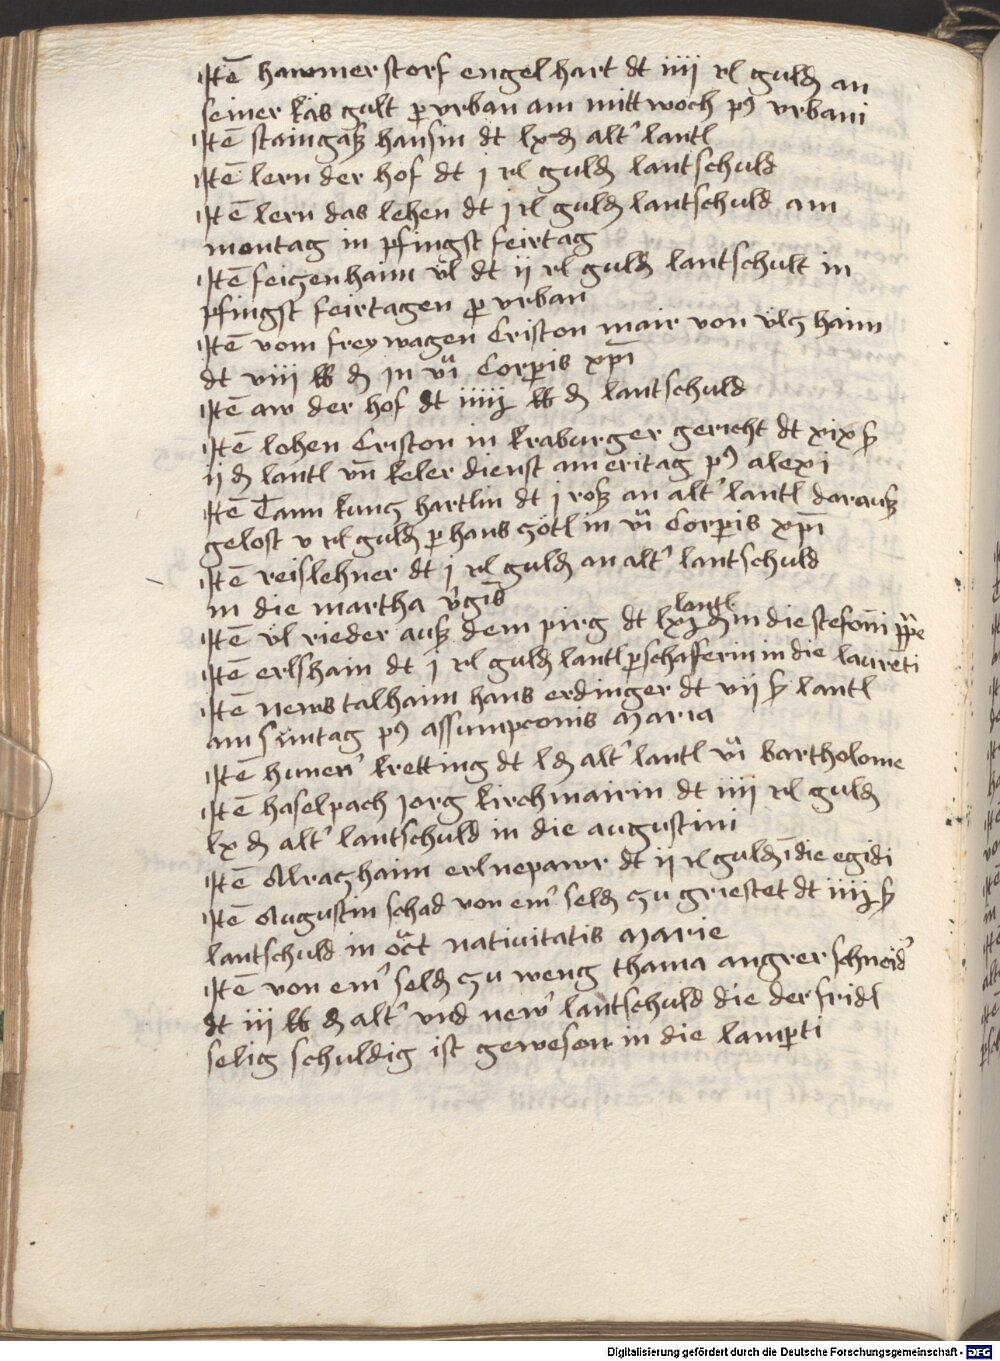 Itē hawmerstorf engelhart dt iiij rl guldn an
seiner käs gult p vrban am mittwoch p9 vrbani
Itē staingaß hansin dt lx dn alt' lantl
Itē lern der hof dt j rl guldn lantschuld
Itē lern das lehen dt j rl guldn lantschuld am
montag in pfingst feirtag
Itē feigenhaim vl dt ij rl guldn lantschult in
pfingst feirtagen p vrban
Itē vom freywagen Criston mair von haim
dt viij lb dn in vi Corpis xpi
Itē aw der hof dt iiij lb dn lantschuld
Itē lohen Criston in kraburger gericht dt xix ß
ij dn lantl vn̄ keler dienst am eritag p9 alexi
Itē Tann kung hartlin dt j roß an alt' lantl darauß
gelost v rl guldn p hans götl in vi Corpis xpi
Itē reislehner dt j rl guldn an alt' lantschuld
in die martha v'gis
Itē vl rieder auß dem pirg dt lxj dn lantl in die stefani ppe
Itē erlshaim dt j rl guldn lantl p schafferin in die laureti
Itē news talhaim hans erdinger dt vij ß lantl
am Suntag p9 assumpconis Maria
Itē huner' kretting dt l dn alt' lantl vi bartholome
Itē haselpach Jorg kirchmairin dt iiij rl guldn
lx dn alt' lantschuld in die augustini
Itē haim erlnepawr dt ij rl guldn ī die egidi
Itē Augustin schad von em' seldn zu griestet dt iiij ß
lantschuld in oct nativitatis Marie
Itē von em' seldn zu weng thama angrer schneid'
dt iij lb dn alt' vnd new' lantschuld die der fridl
selig schuldig ist gewesen in die lamperti
Digitalisierung gefördert durch die Deutsche Forschungsgemeinschaft - DFG